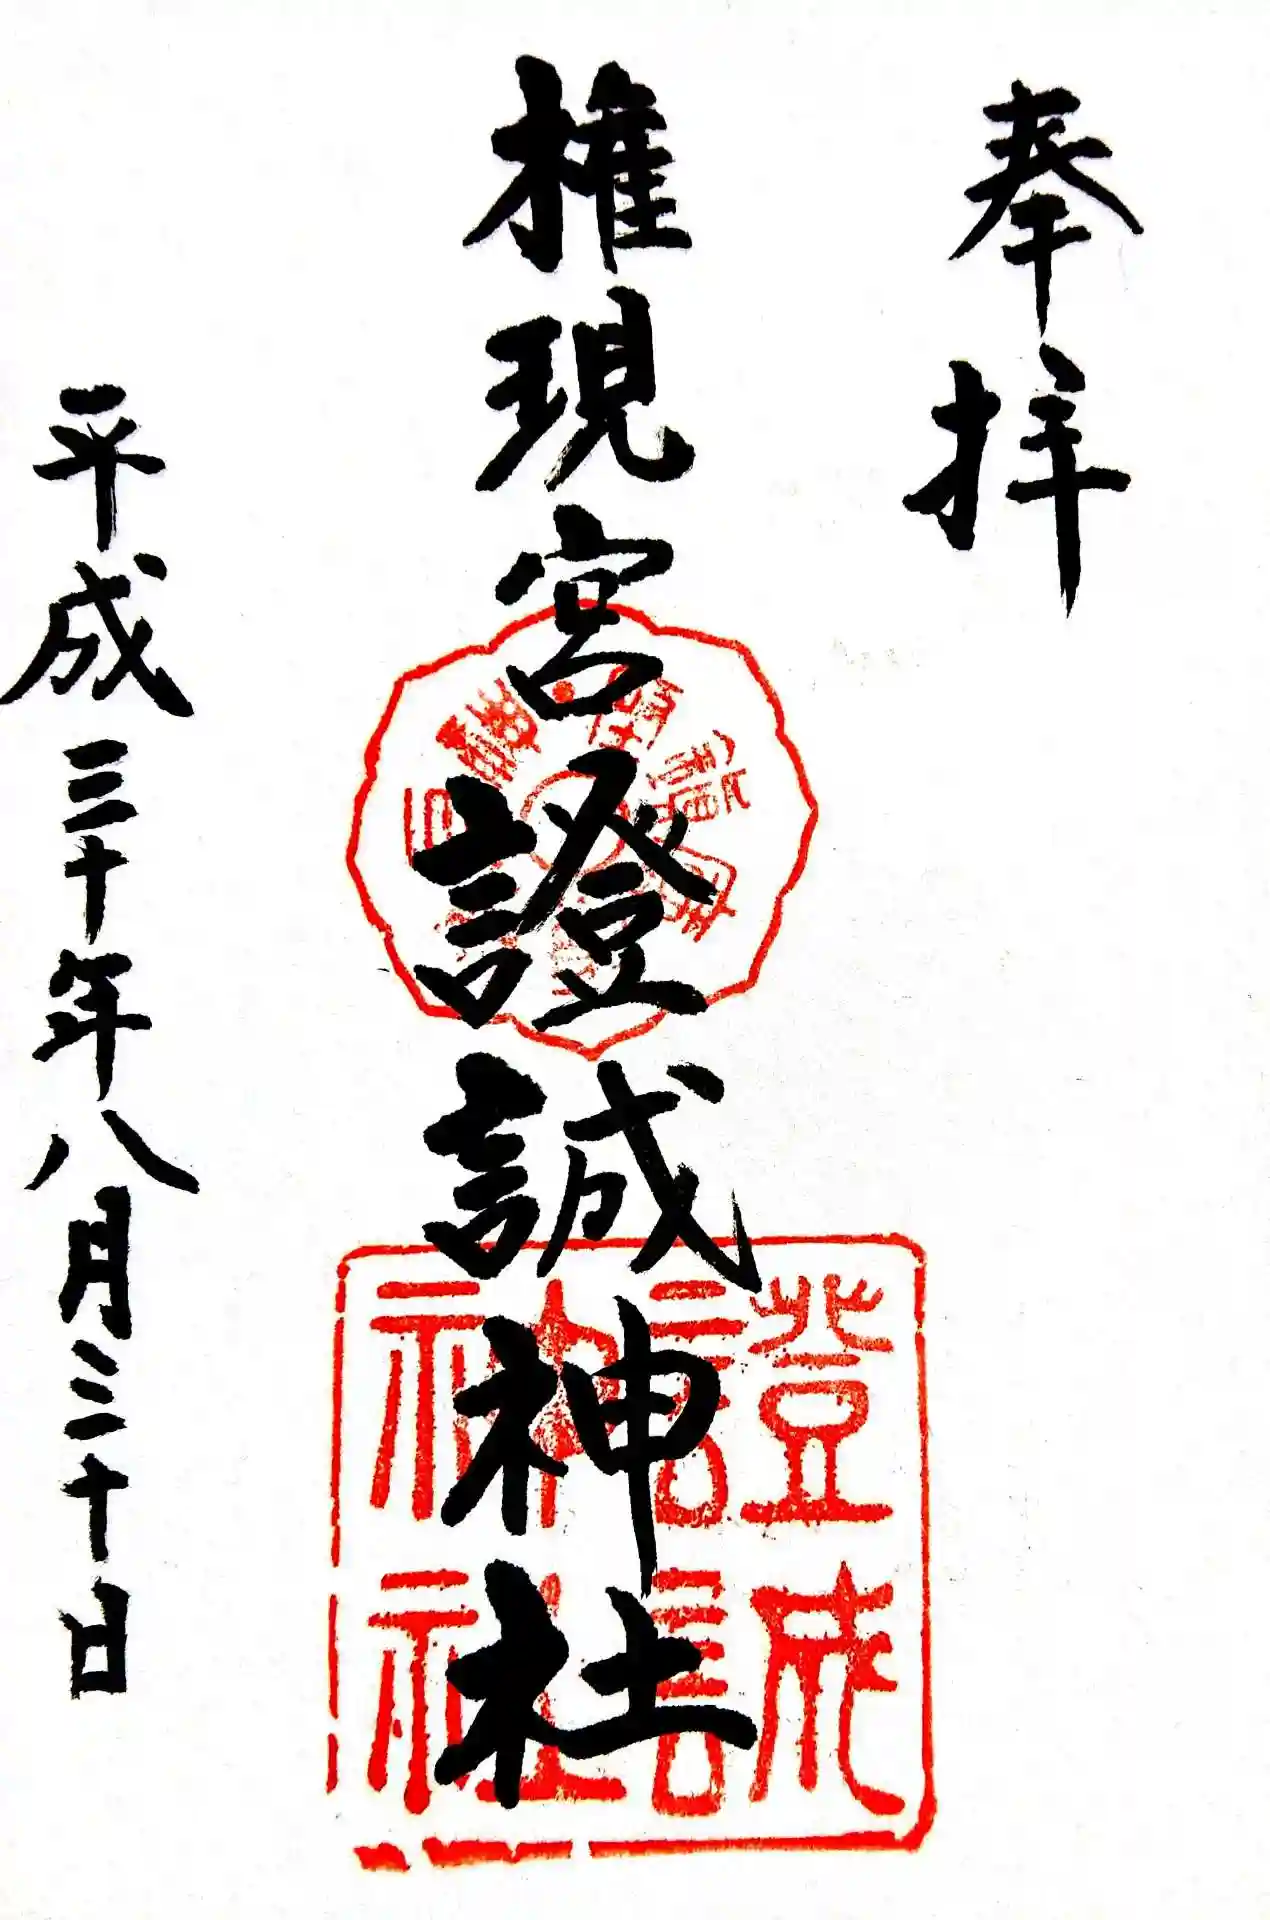 奉拝
権現宮證誠神社
平成三十年八月三十日
證誠
神社